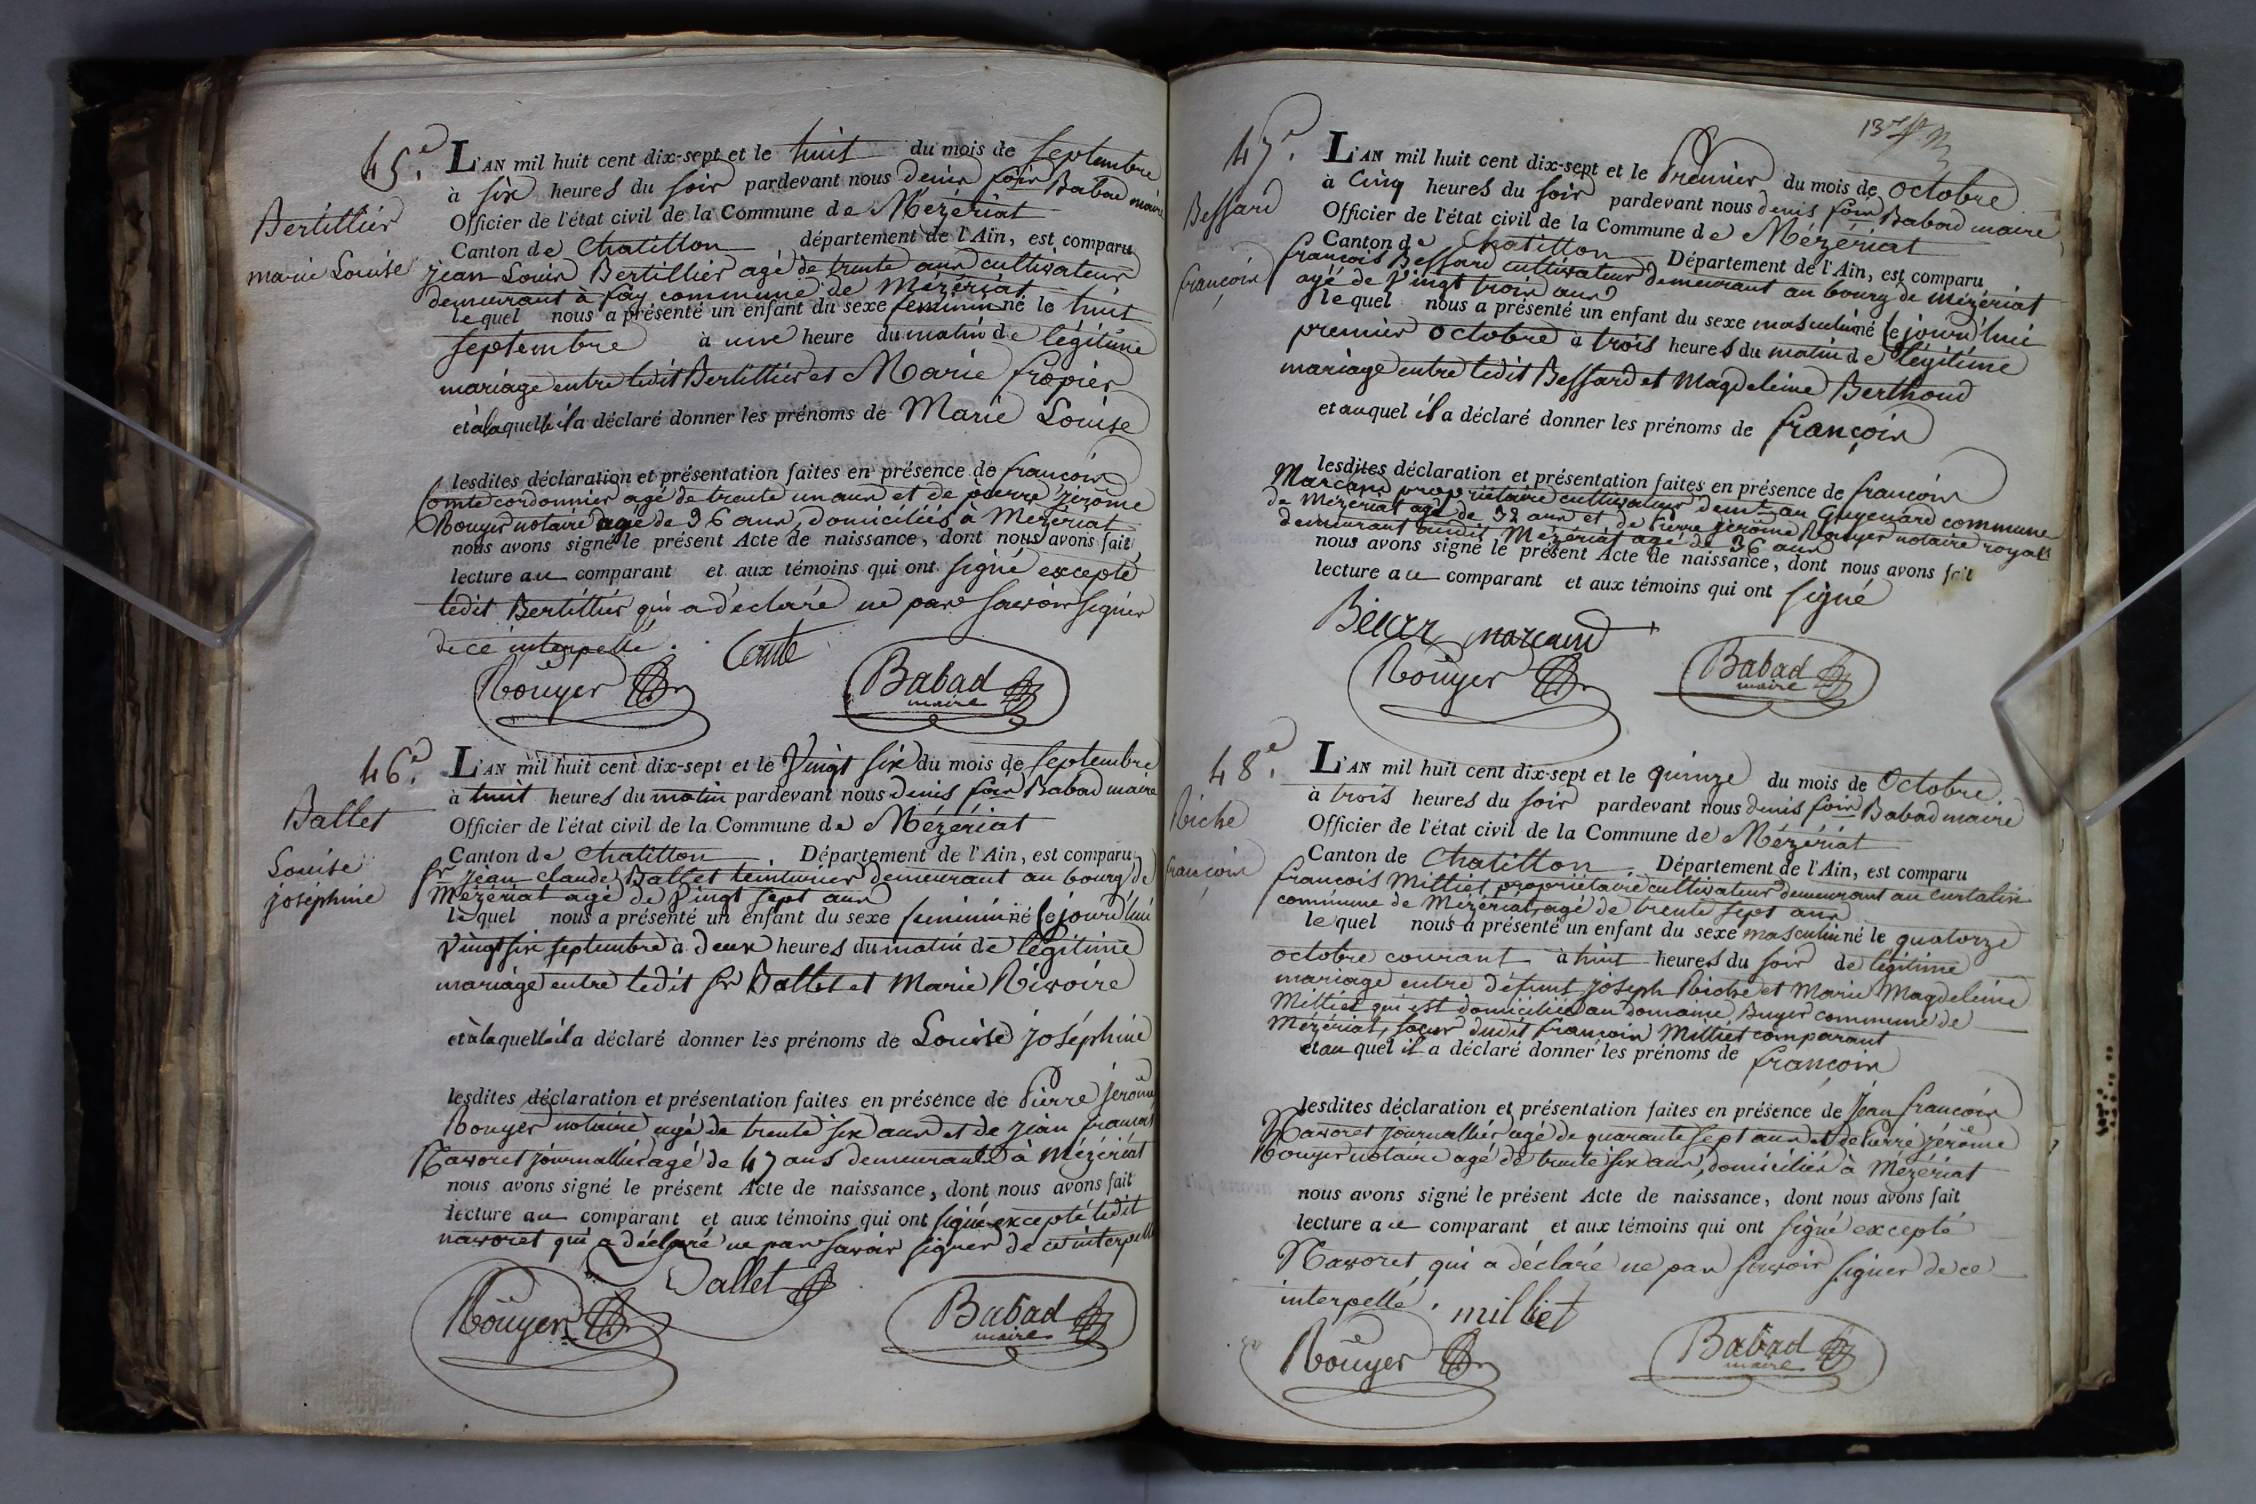 45.e
Bertillier
marie Louise
L'AN mil huit cent dix-sept et le huit du mois de septembre
à six heures du soir pardevant nous denis foix Babad maire
Officier de l'état civil de la Commune de Mézériat
Canton de Chatillon département de l'Ain, est comparu
jean Louis Bertillier agé de trente ans cultivateur
demeurant à fay commune de Mézériat
lequel nous a présenté un enfant du sexe feminin né le huit
septembre à une heure du matin de légitime
mariage entre ledit Bertillier et Marie fropier
et à laquelle il a déclaré donner les prénoms de Marie Louise
lesdites déclaration et présentation faites en présence de françois
Comte cordonnier agé de trente un ans et de pierre jérôme
Rouyer notaire agé de 36 ans, domiciliés à Mézériat
nous avons signé le présent Acte de naissance, dont nous avons fait
lecture au comparant et aux témoins qui ont signé excepté
ledit Bertillier qui a déclaré ne pas savoir signer
de ce interpellé.
Comte
Rouyer
Babad
maire
46.e
Ballet
Louise
joséphine
L'AN mil huit cent dix-sept et le Vingt six du mois de septembre
à huit heures du matin pardevant nous denis foix Babad maire
Officier de l'état civil de la Commune de Mézériat
Canton de Chatillon Département de l'Ain, est comparu
sr jean claude Ballet teinturier demeurant au bourg de
Mézériat agé de Vingt sept ans
lequel nous a présenté un enfant du sexe feminin né cejourd'hui
Vingt six septembre à deux heures du matin de légitime
mariage entre ledit sr Ballet et Marie Rivoire
et à laquelle il a déclaré donner les prénoms de Louise joséphine
lesdites déclaration et présentation faites en présence de Pierre jerome
Rouyer notaire agé de trente six ans et de jean francois
Navoret journallier agé de 47 ans demeurants à Mézériat
nous avons signé le présent Acte de naissance, dont nous avons fait
lecture au comparant et aux témoins qui ont signé excepté ledit
navoret qui a déclaré ne pas savoir signer de ce interpellé
Ballet
Rouyer
Babad
maire
137
47.e
Bessard
françois
L'AN mil huit cent dix-sept et le Premier du mois de octobre
à Cinq heures du soir pardevant nous denis foix Babad maire
Officier de l'état civil de la Commune de Mézériat
Canton de Chatillon Département de l'Ain, est comparu
françois Bessard cultivateur demeurant au bourg de Mézériat
agé de Vingt trois ans
lequel nous a présenté un enfant du sexe masculin né cejourd'hui
premier octobre à trois heures du matin de légitime
mariage entre ledit Bessard et Magdeleine Berthoud
et auquel il a déclaré donner les prénoms de françois
lesdites déclaration et présentation faites en présence de françois
Marcand propriétaire cultivateur demt au Guyenard commune
de Mézériat agé de 32 ans et de Pierre jerôme Rouyer notaire royal
demeurant audit Mézériat agé de 36 ans
nous avons signé le présent Acte de naissance, dont nous avons fait
lecture au comparant et aux témoins qui ont signé
marcand
Rouyer
Babad
maire
48.e
Riche
françois
L'AN mil huit cent dix-sept et le quinze du mois de Octobre
à trois heures du soir pardevant nous denis foix Babad maire
Officier de l'état civil de la Commune de Mézériat
Canton de Chatillon. Département de l'Ain, est comparu
françois Milliet propriétaire cultivateur demeurant au curtalin
commune de Mézériat, agé de trente sept ans
lequel nous a présenté un enfant du sexe masculin né le quatorze
octobre courant à huit heures du soir de légitime
mariage entre défunt joseph Riche et Marie Magdeleine
Milliet qui est domiciliée au domaine Buyer commune de
Mézériat, sœur dudit françois Milliet comparant
et au quel il a déclaré donner les prénoms de françois
lesdites déclaration et présentation faites en présence de jean françois
Navoret journallier agé de quarante sept ans et de Pierre jérôme
Rouyer notaire agé de trente six ans, domiciliés à Mézériat
nous avons signé le présent Acte de naissance, dont nous avons fait
lecture au comparant et aux témoins qui ont signé excepté
Navoret qui a déclaré ne pas savoir signer de ce
interpellé. milliet
Rouyer
Babad
maire